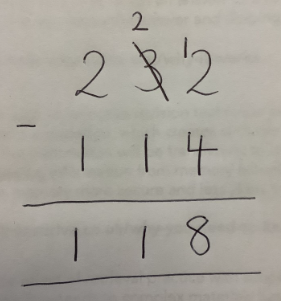 2
2 3 12
- 1 1 4
1 1 8